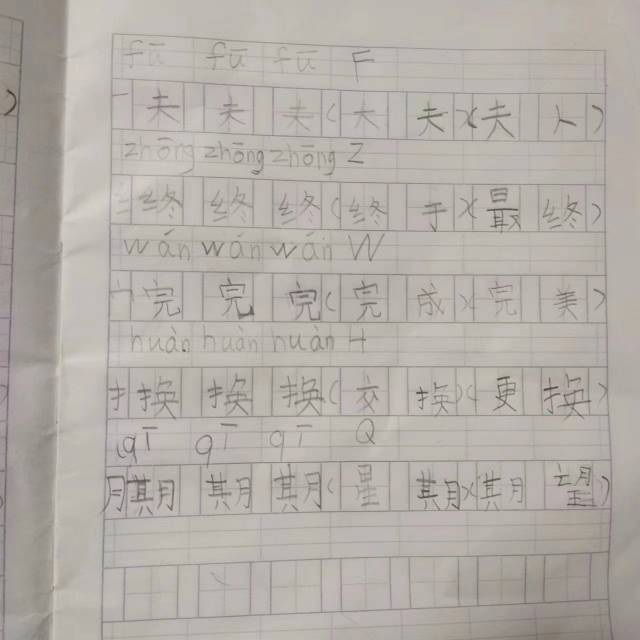 fū fū fū F
夫 夫 夫 ( 大 夫 ) ( 夫 人 )
zhōng zhōng zhōng Z
纟 终 终 终 ( 终 于 ) ( 最 终 )
wán wán wán W
宀 完 完 完 ( 完 成 ) ( 完 美 )
huàn huàn huàn H
扌 换 换 换 ( 交 换 ) ( 更 换 )
qī qī qī Q
月 期 期 期 ( 星 期 ) ( 期 望 )